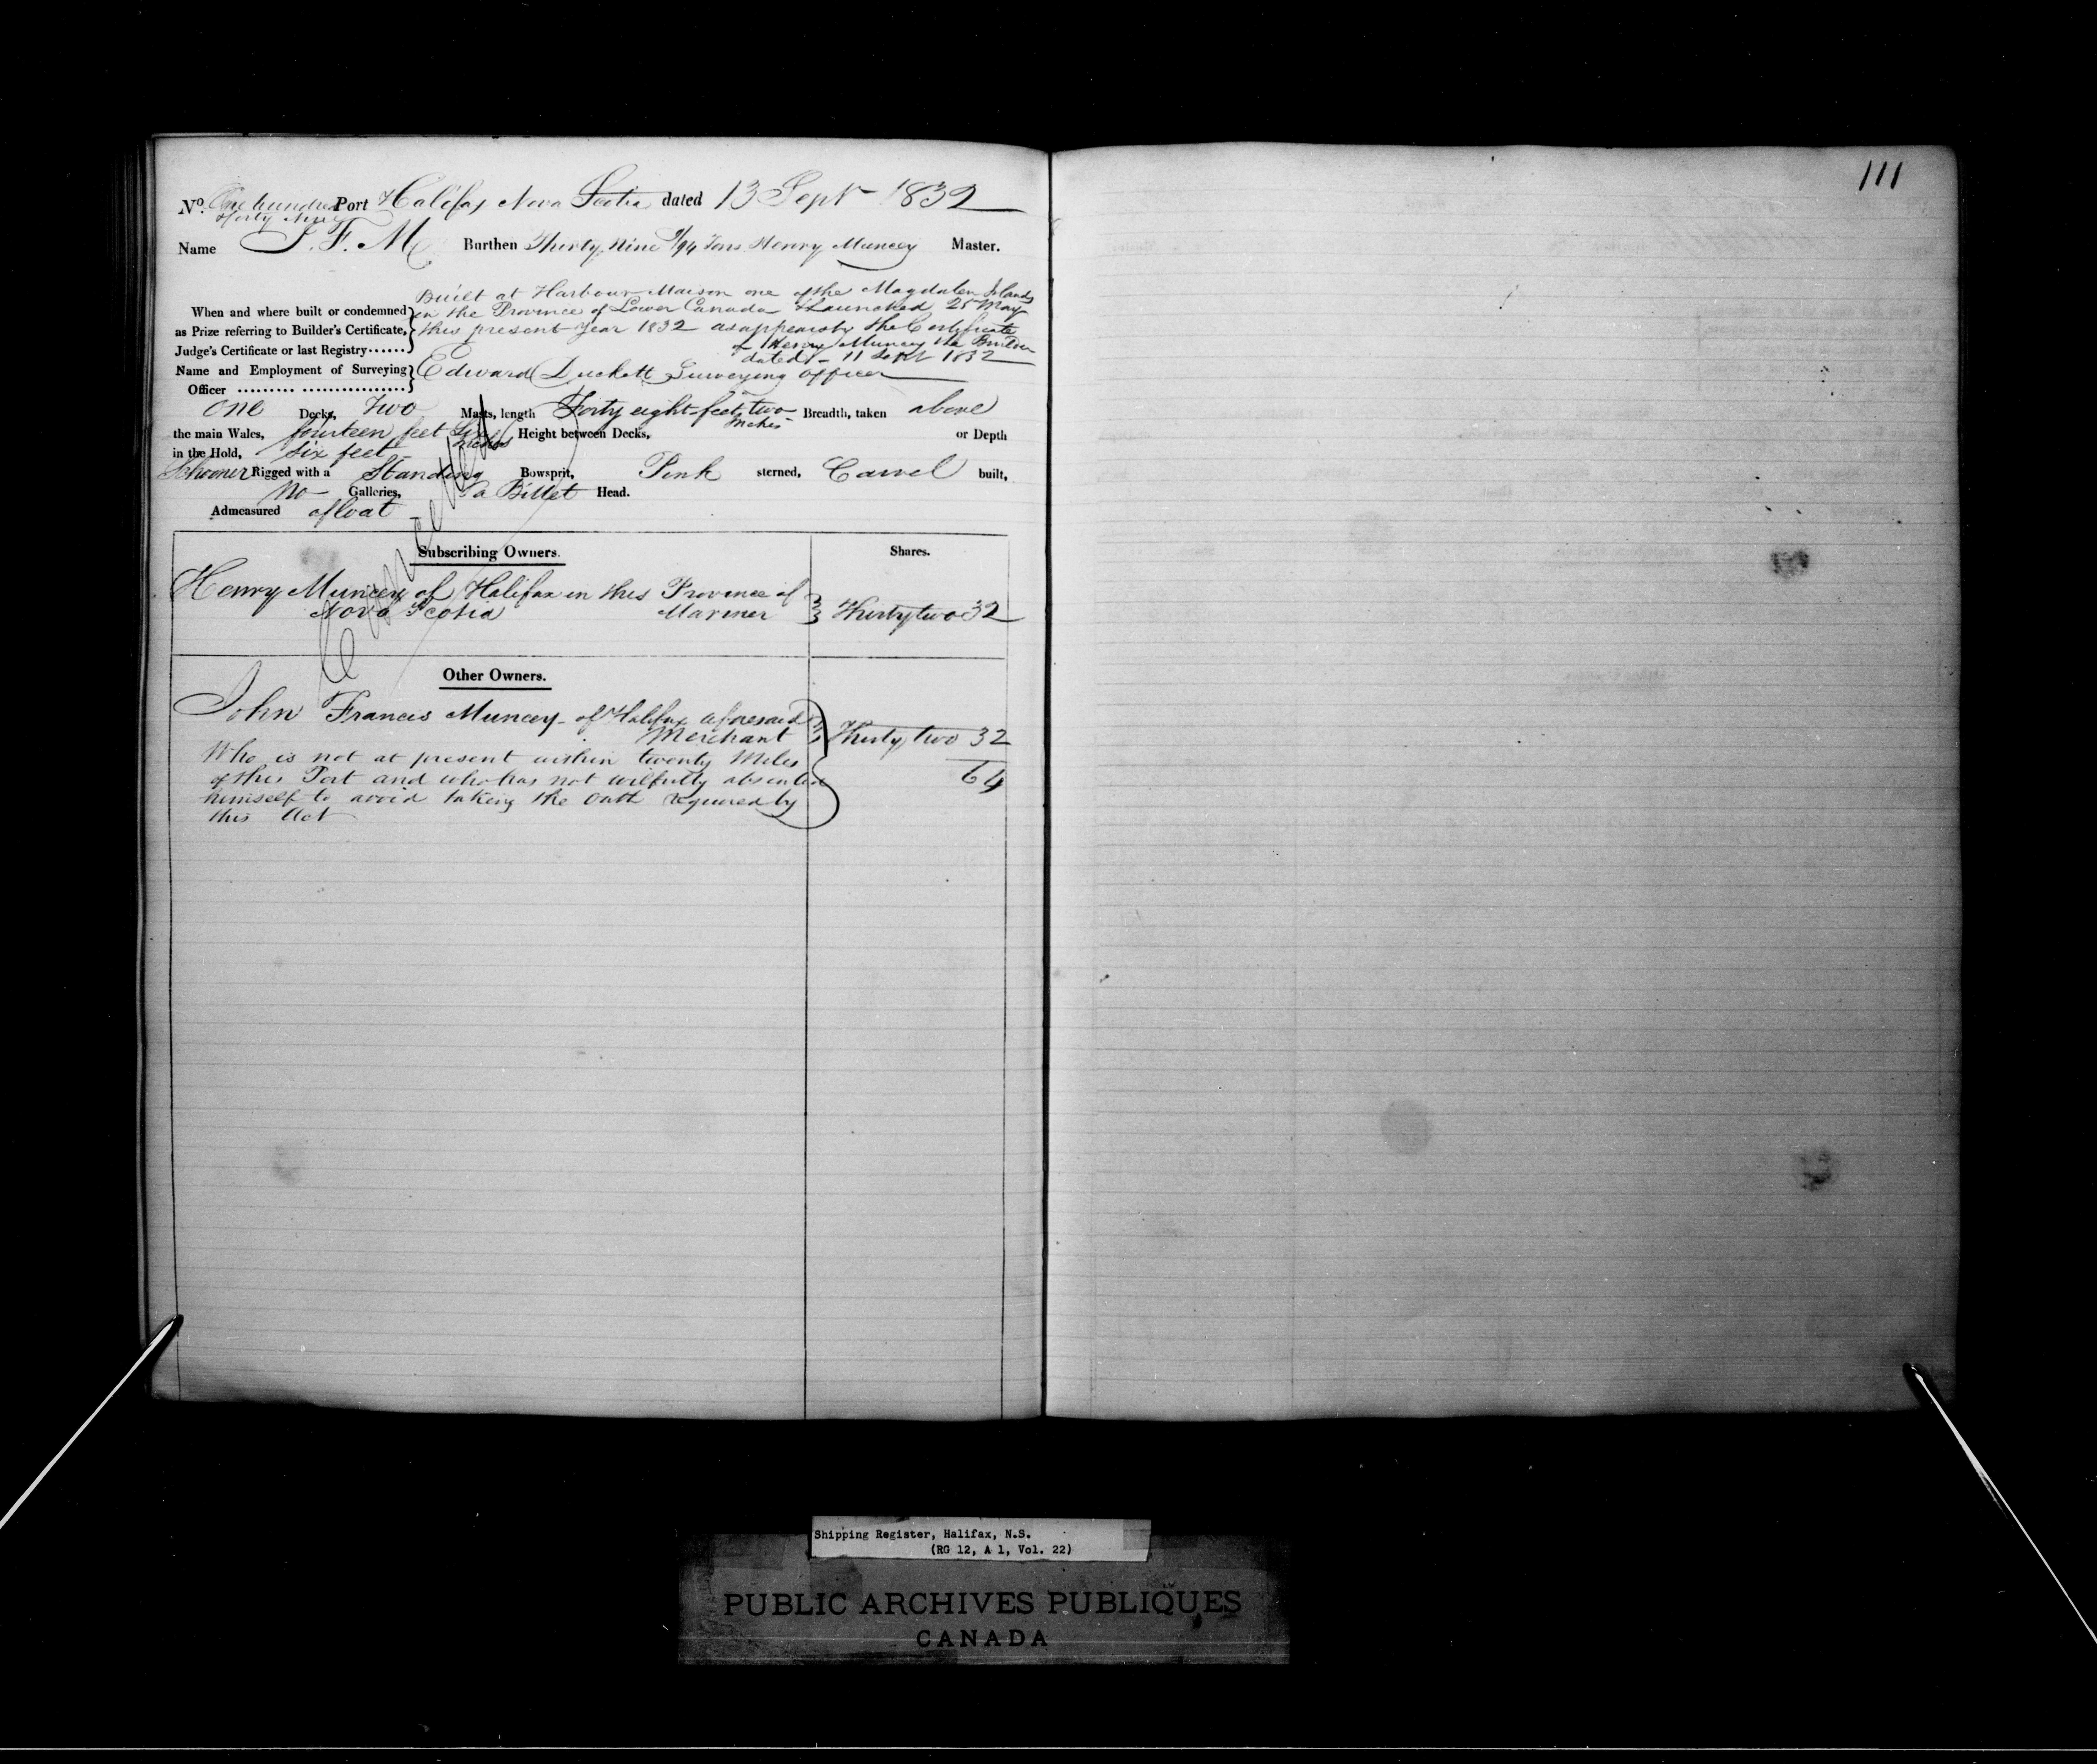 No. One hundred Port Halifax Nova Scotia dated 13 Sept 1832
& forty Nine
Name J. F. M Burthen Thirty Nine 9/94 Tons Henry Muncey Master.
Built at Harbour Maison one of the Magdalen Islands
When and where built or condemned in the Province of Lower Canada & Launched 25 May
as Prize referring to Builder's Certificate, this present year 1832 as appears by the Certificate
Judge's Certificate or last Registry...... of Henry Muncey the Builder
dated - 11 Sept 1832
Name and Employment of Surveying Edward Duckett Surveying Officer
Officer ......... ................
One Decks, Two Masts, length Forty eight feet two Inches Breadth, taken above
the main Wales, fourteen feet Six Inches Height between Decks, or Depth
in the Hold, Six feet
Schooner Rigged with a Standing Bowsprit, Pink sterned, Carvel built,
No Galleries, a Billet Head.
Admeasured afloat
Cancelled
Subscribing Owners. Shares.
Henry Muncey of Halifax in this Province of
Nova Scotia Mariner Thirty two 32
Other Owners.
John Francis Muncey of Halifax aforesaid
Merchant Thirty two 32
Who is not at present within twenty Miles
of this Port and who has not wilfully absented 64
himself to avoid taking the Oath required by
this Act
111
Shipping Register, Halifax, N.S.
(RG 12, A 1, Vol. 22)
PUBLIC ARCHIVES PUBLIQUES
CANADA